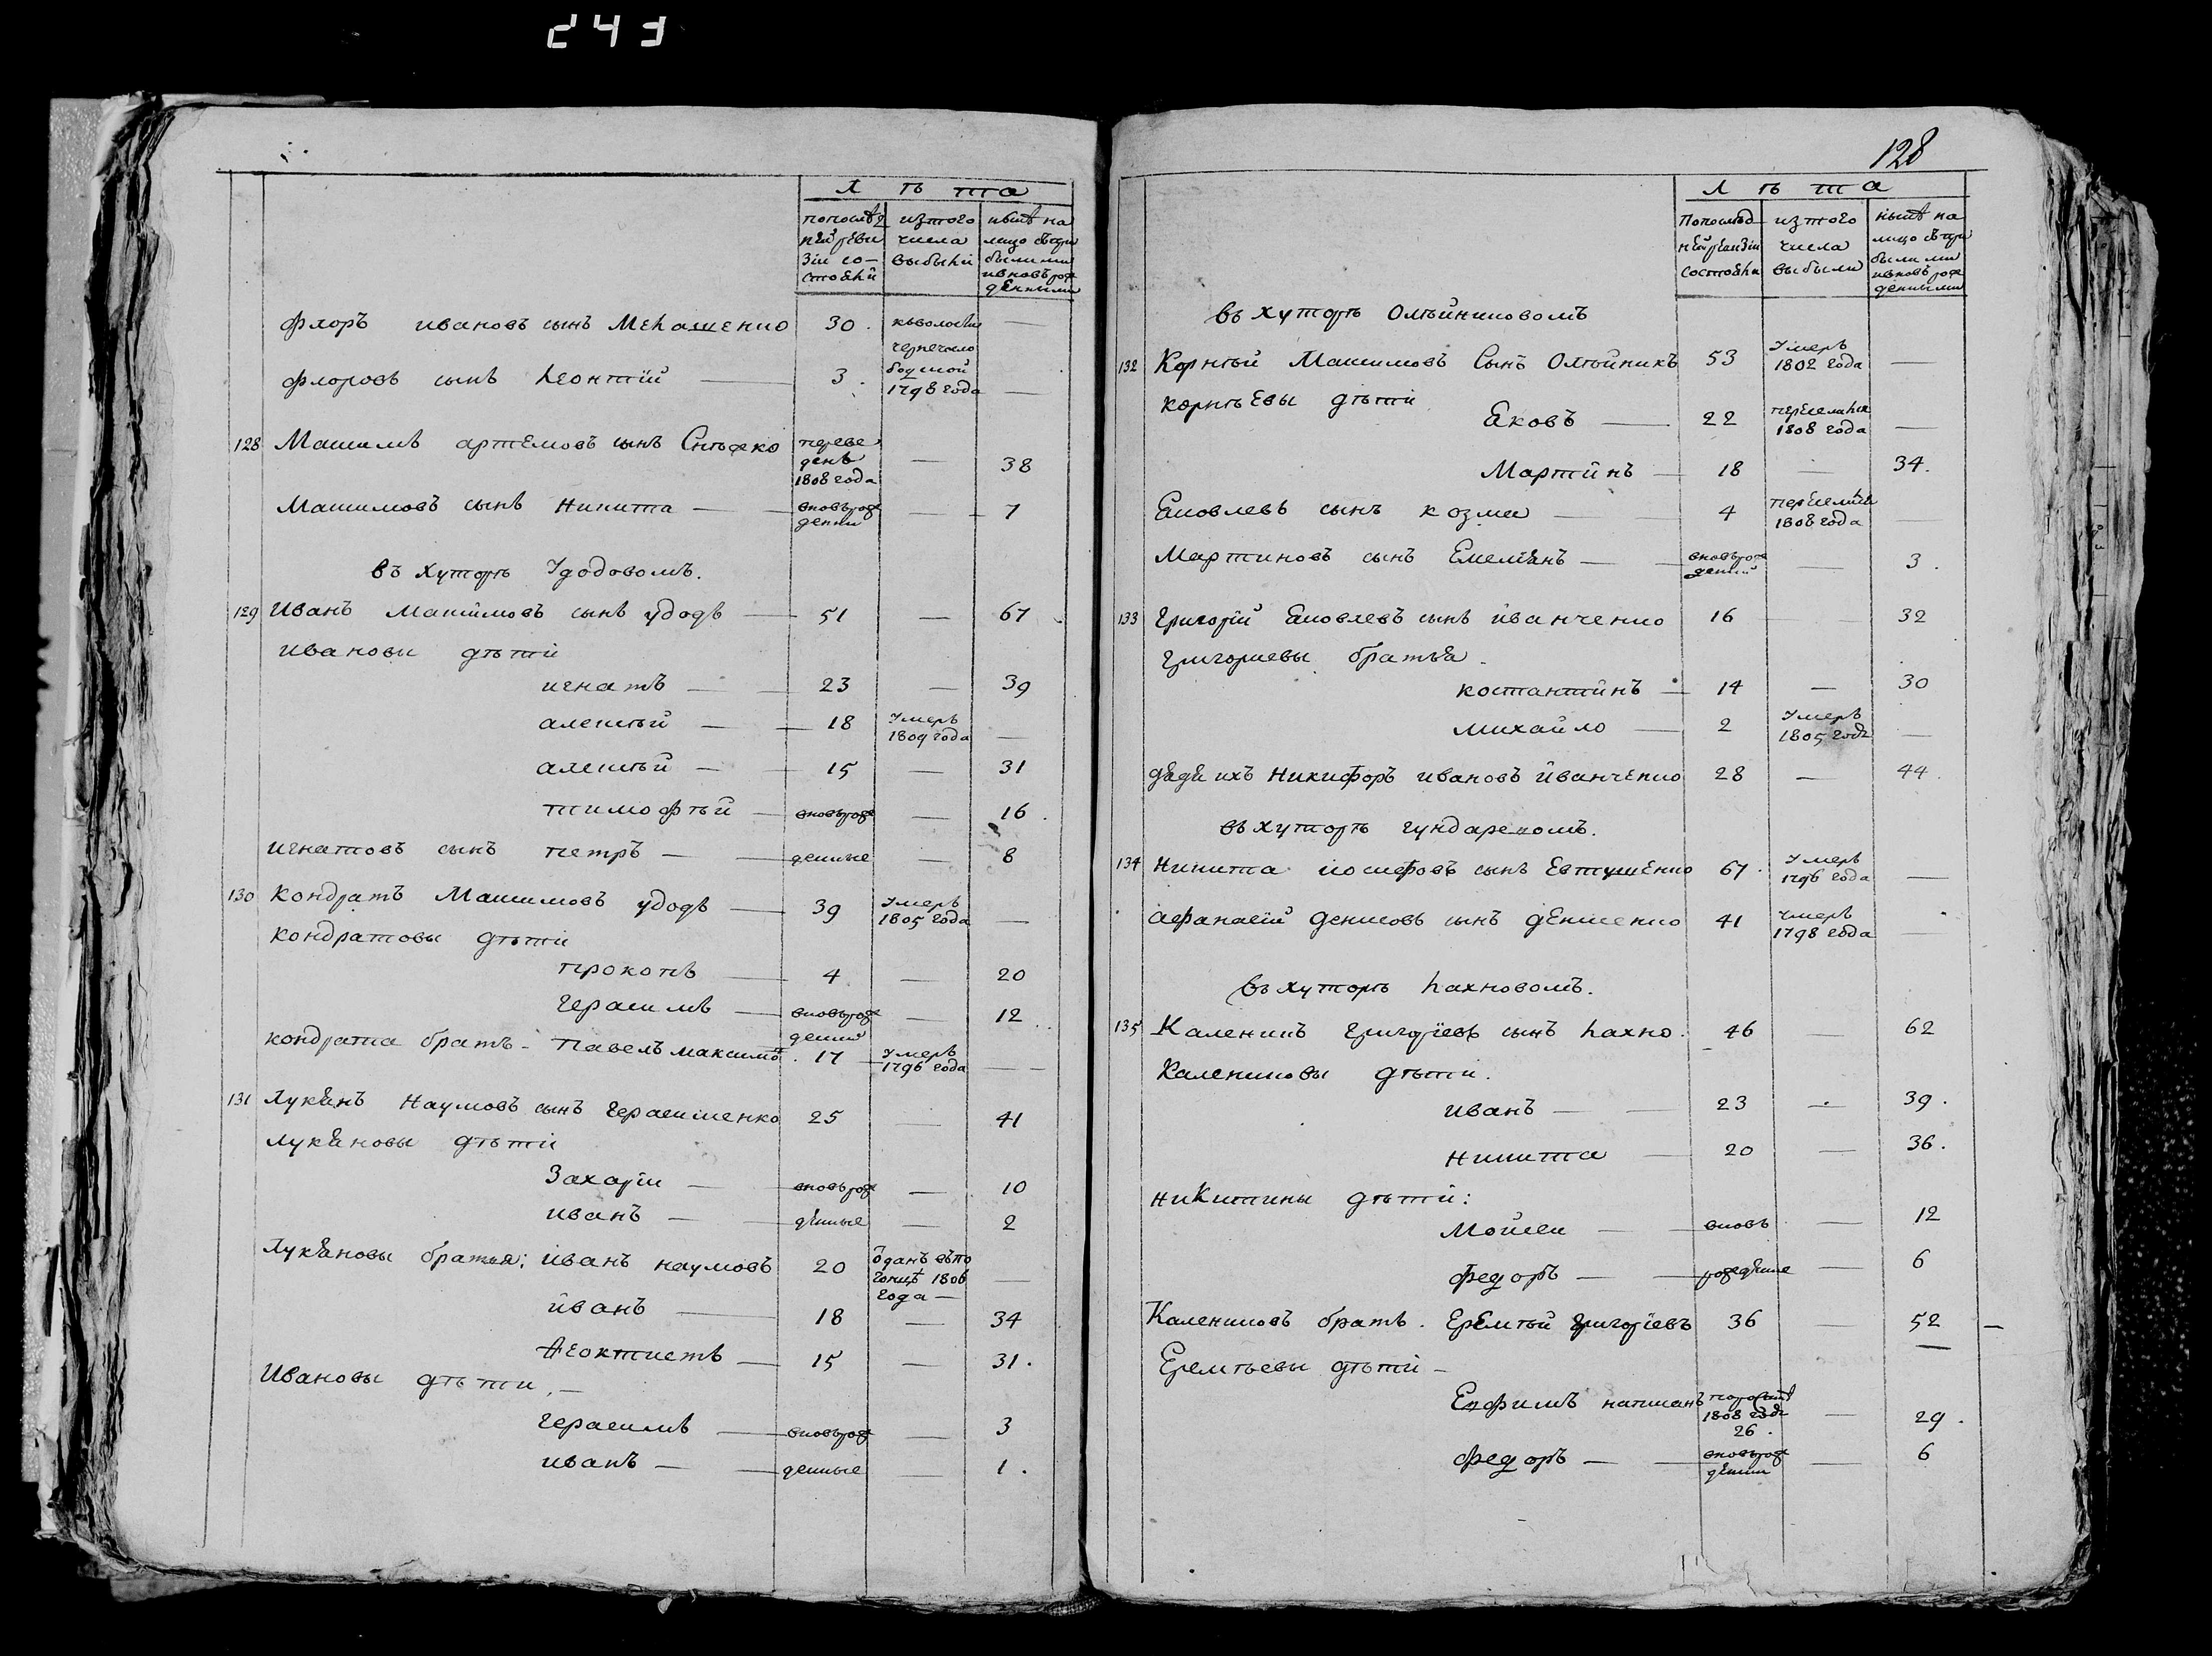 243
лѣта
попослѣд изтого нынѣ на
ней реви числа лицо съпри
зіи со- выбыли былыми
стояли ивновь рож
денными
Флоръ ивановъ сынъ 30. —
Флоровъ сынъ Леонтій — 3. 1798 года —
128 Максимъ артемовъ сынъ переве
денъ — 38
1808 года
Максимовъ сынъ Никита — вновь рож — 7
денни
въ хуторѣ Удодовомъ.
129 Иванъ Максимовъ сынъ удодъ — 51 — 67
Ивановы дѣти
игнатъ — 23 — 39
алексѣй — 18 Умеръ
1809 года —
алексѣй — 15 — 31
тимофѣй — вновь рож — 16.
игнатовъ сынъ петръ — денные — 8
130 Кондратъ Максимовъ удодъ — 39 Умеръ
1805 года —
Кондратовы дѣти
прокопъ — 4 — 20
Герасимъ — вновь рож — 12
денни
Кондрата братъ - Павелъ максимо 17 Умеръ
1796 года —
131 Лукянъ Наумовъ сынъ Герасименко 25 — 41
Лукяновы дѣти
Захарій — вновь рож — 10
иванъ — денные — 2
Лукяновы братья: иванъ наумовъ 20 1806
года —
иванъ — 18 — 34
Феоктистъ — 15 — 31.
Ивановы дѣти. —
Герасимъ — вновь рож — 3
иванъ — денные — 1.
128
лѣта
Попослѣд изтого нынѣ на
ней ревизіи числа лицо съпри
состояли выбыли былыми
ивновь рож
денными
въ хуторѣ Олѣйниковомъ
132 Корнѣй Максимовъ Сынъ Олѣйникъ 53 Умеръ
1802 года —
Корнѣевы дѣти
Яковъ — 22
1808 года —
Мартинъ — 18 — 34.
Яковлевъ сынъ козма — 4
1808 года
Мартиновъ сынъ Емелянъ — вновь рож
денни — 3.
133 Григорій Яковлевъ сынъ иванченко 16 — 32
Григориевы братья.
костантинъ — 14 — 30
михайло — 2 Умеръ
1805 года —
дядя ихъ Никифоръ ивановъ иванченко 28 — 44.
въ хуторѣ гундареномъ.
134 Никита иосифовъ сынъ Евтушенко 67. Умеръ
1796 года —
афанасій денисовъ сынъ денисенко 41 Умеръ
1798 года —
въ хуторѣ Лахновомъ.
135 Каленикъ Григоріевъ сынъ Лахно. 46 — 62
Калениковы дѣти.
иванъ — 23 — 39.
Никита — 20 — 36.
Никитины дѣти:
Мойсеи — вновь — 12
Федоръ — рожденные — 6
Калениковъ братъ. Еремѣй Григоріевъ 36 — 52 —
Еремѣевы дѣти —
Ефимъ написанъ
1808 года — 29.
26.
Федоръ — вновь рож — 6
денни